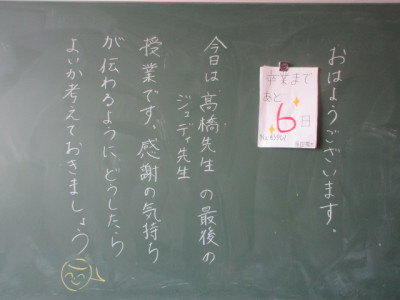 おはようございます。
卒業まで
あと
6日
今日は髙橋先生の最後の
ジュディ先生
授業です。感謝の気持ち
が伝わるように、どうしたら
よいか考えておきましょう